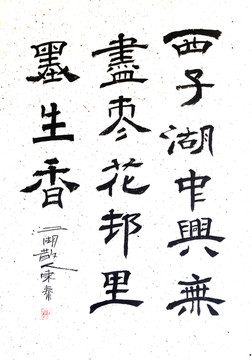 西子湖中興無
盡枣花邨里
墨生香
二湖散人宋